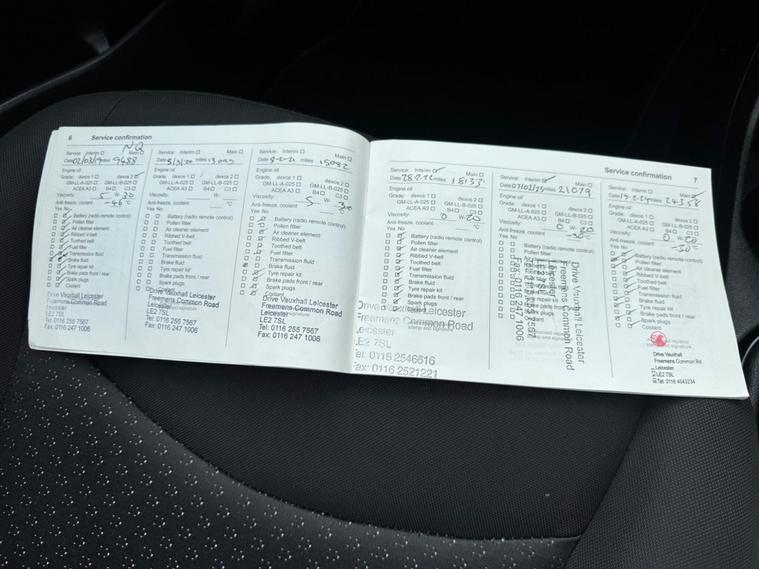 6 Service confirmation
NQ
Service: Interim Main
Date 02/03/19 miles 9488
Engine oil
Grade: dexos 1 dexos 2
GM-LL-A-025 GM-LL-B-025
ACEA A3 B4 C3
Viscosity: 5 W- 30
Anti-freeze, coolant -46 °C
Yes No
Battery (radio remote control)
Pollen filter
Air cleaner element
Ribbed V-belt
Toothed belt
Fuel filter
Transmission fluid
Brake fluid
Tyre repair kit
Brake pads front / rear
Spark plugs
Coolant
Drive Vauxhall Leicester
Freemens Common Road
Leicester
LE2 7SL
Tel: 0116 255 7567
Fax: 0116 247 1006
Service: Interim Main
Date 5/3/20 miles
Engine oil
Grade: dexos 1 dexos 2
GM-LL-A-025 GM-LL-B-025
ACEA A3 B4 C3
Viscosity: W-
Anti-freeze, coolant °C
Yes No
Battery (radio remote control)
Pollen filter
Air cleaner element
Ribbed V-belt
Toothed belt
Fuel filter
Transmission fluid
Brake fluid
Tyre repair kit
Brake pads front / rear
Spark plugs
Drive Vauxhall Leicester
Freemens Common Road
Leicester
LE2 7SL
Tel: 0116 255 7567
Fax: 0116 247 1006
Service: Interim Main
Date 9-2-21 miles 15082
Engine oil
Grade: dexos 1 dexos 2
GM-LL-A-025 GM-LL-B-025
ACEA A3 B4 C3
Viscosity: 5 W- 30
Anti-freeze, coolant °C
Yes No
Battery (radio remote control)
Pollen filter
Air cleaner element
Ribbed V-belt
Toothed belt
Fuel filter
Transmission fluid
Brake fluid
Tyre repair kit
Brake pads front / rear
Spark plugs
Coolant
Drive Vauxhall Leicester
Freemens Common Road
Leicester
LE2 7SL
Tel: 0116 255 7567
Fax: 0116 247 1006
Service: Interim Main
Date 28-2-22 miles 18133
Engine oil
Grade: dexos 1 dexos 2
GM-LL-A-025 GM-LL-B-025
ACEA A3 B4 C3
Viscosity: 0 W- 20
Anti-freeze, coolant °C
Yes No
Battery (radio remote control)
Pollen filter
Air cleaner element
Ribbed V-belt
Toothed belt
Fuel filter
Transmission fluid
Brake fluid
Tyre repair kit
Brake pads front / rear
Spark plugs
Coolant
Drive Vauxhall Leicester
Freemens Common Road
Leicester
LE2 7SL
Tel: 0116 2546616
Fax: 0116 2521221
Service: Interim Main
miles 21079
Engine oil
Grade: dexos 1 dexos 2
GM-LL-A-025 GM-LL-B-025
ACEA A3 B4 C3
Viscosity: 0 W- 20
Anti-freeze, coolant -30 °C
Yes No
Battery (radio remote control)
Coolant
Drive Vauxhall Leicester
Freemens Common Road
Leicester
Fax: 0116 247 1006
Service confirmation 7
Service: Interim Main
miles 24358
Engine oil
Grade: dexos 1 dexos 2
GM-LL-A-025 GM-LL-B-025
ACEA A3 B4 C3
Viscosity: 0 W- 20
Anti-freeze, coolant -30 °C
Yes No
Battery (radio remote control)
Pollen filter
Air cleaner element
Ribbed V-belt
Toothed belt
Fuel filter
Transmission fluid
Brake fluid
Tyre repair kit
Brake pads front / rear
Spark plugs
Coolant
Drive Vauxhall
Freemens Common Rd
Leicester
LE2 7SL
Tel: 0116 4043234